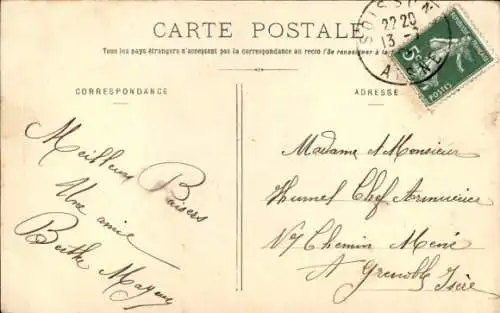 CARTE POSTALE
Tous les pays étrangers n'acceptent pas la correspondance au recto (Se renseigner à la
CORRESPONDANCE
ADRESSE
SOISSONS
22 20
13
AISNE
5c
POSTES
Meilleurs Baisers
Une amie
Berthe
Madame & Monsieur
Humel Chef Armurier
Chemin
A Grenoble Isère